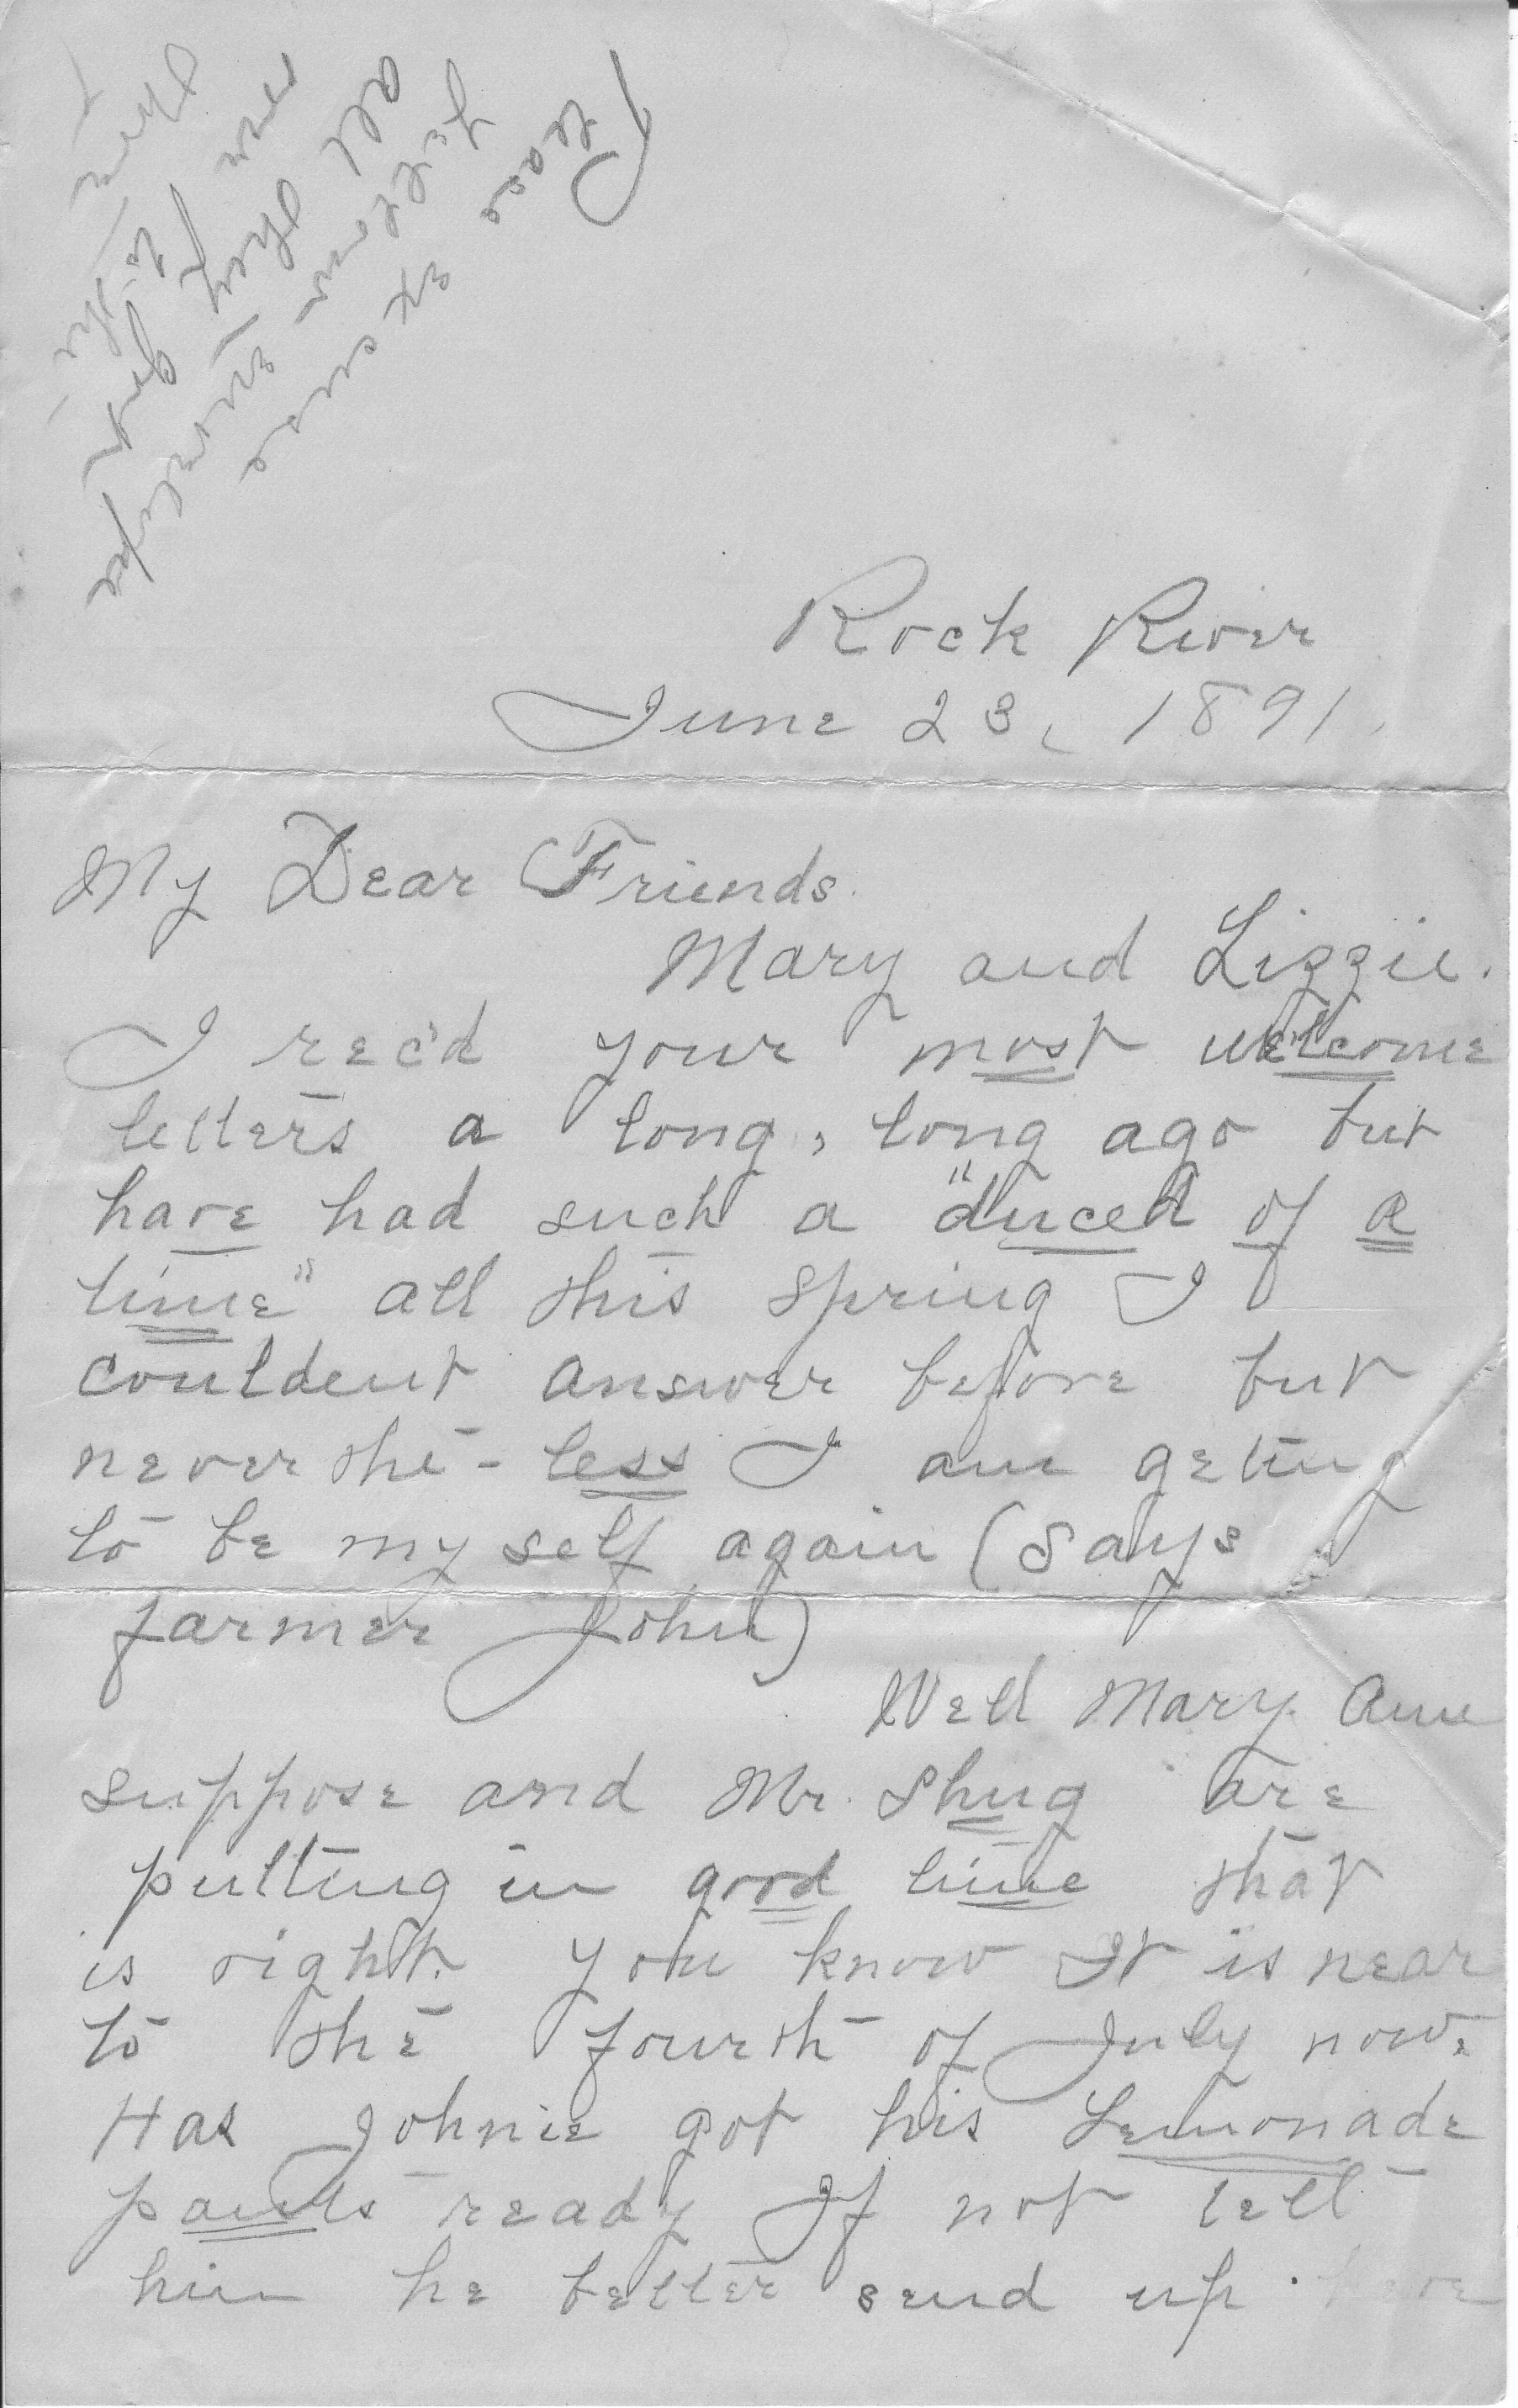 Please excuse
Letter & envelope
all that
Rock River
June 23, 1891.
My Dear Friends.
Mary and Lizzie.
I rec'd your most welcome
letters a long, long ago but
have had such a "duced of a
time" all this spring I
couldent answer before but
never the-less I am geting
to be my self again (says
farmer John)
Well Mary. Ann
suppose and Mr. Shug are
putting in good time that
is right. you know It is near
to the fourth of July now.
Has Johnie got his Lemonade
pants ready If not tell
him he better send up here